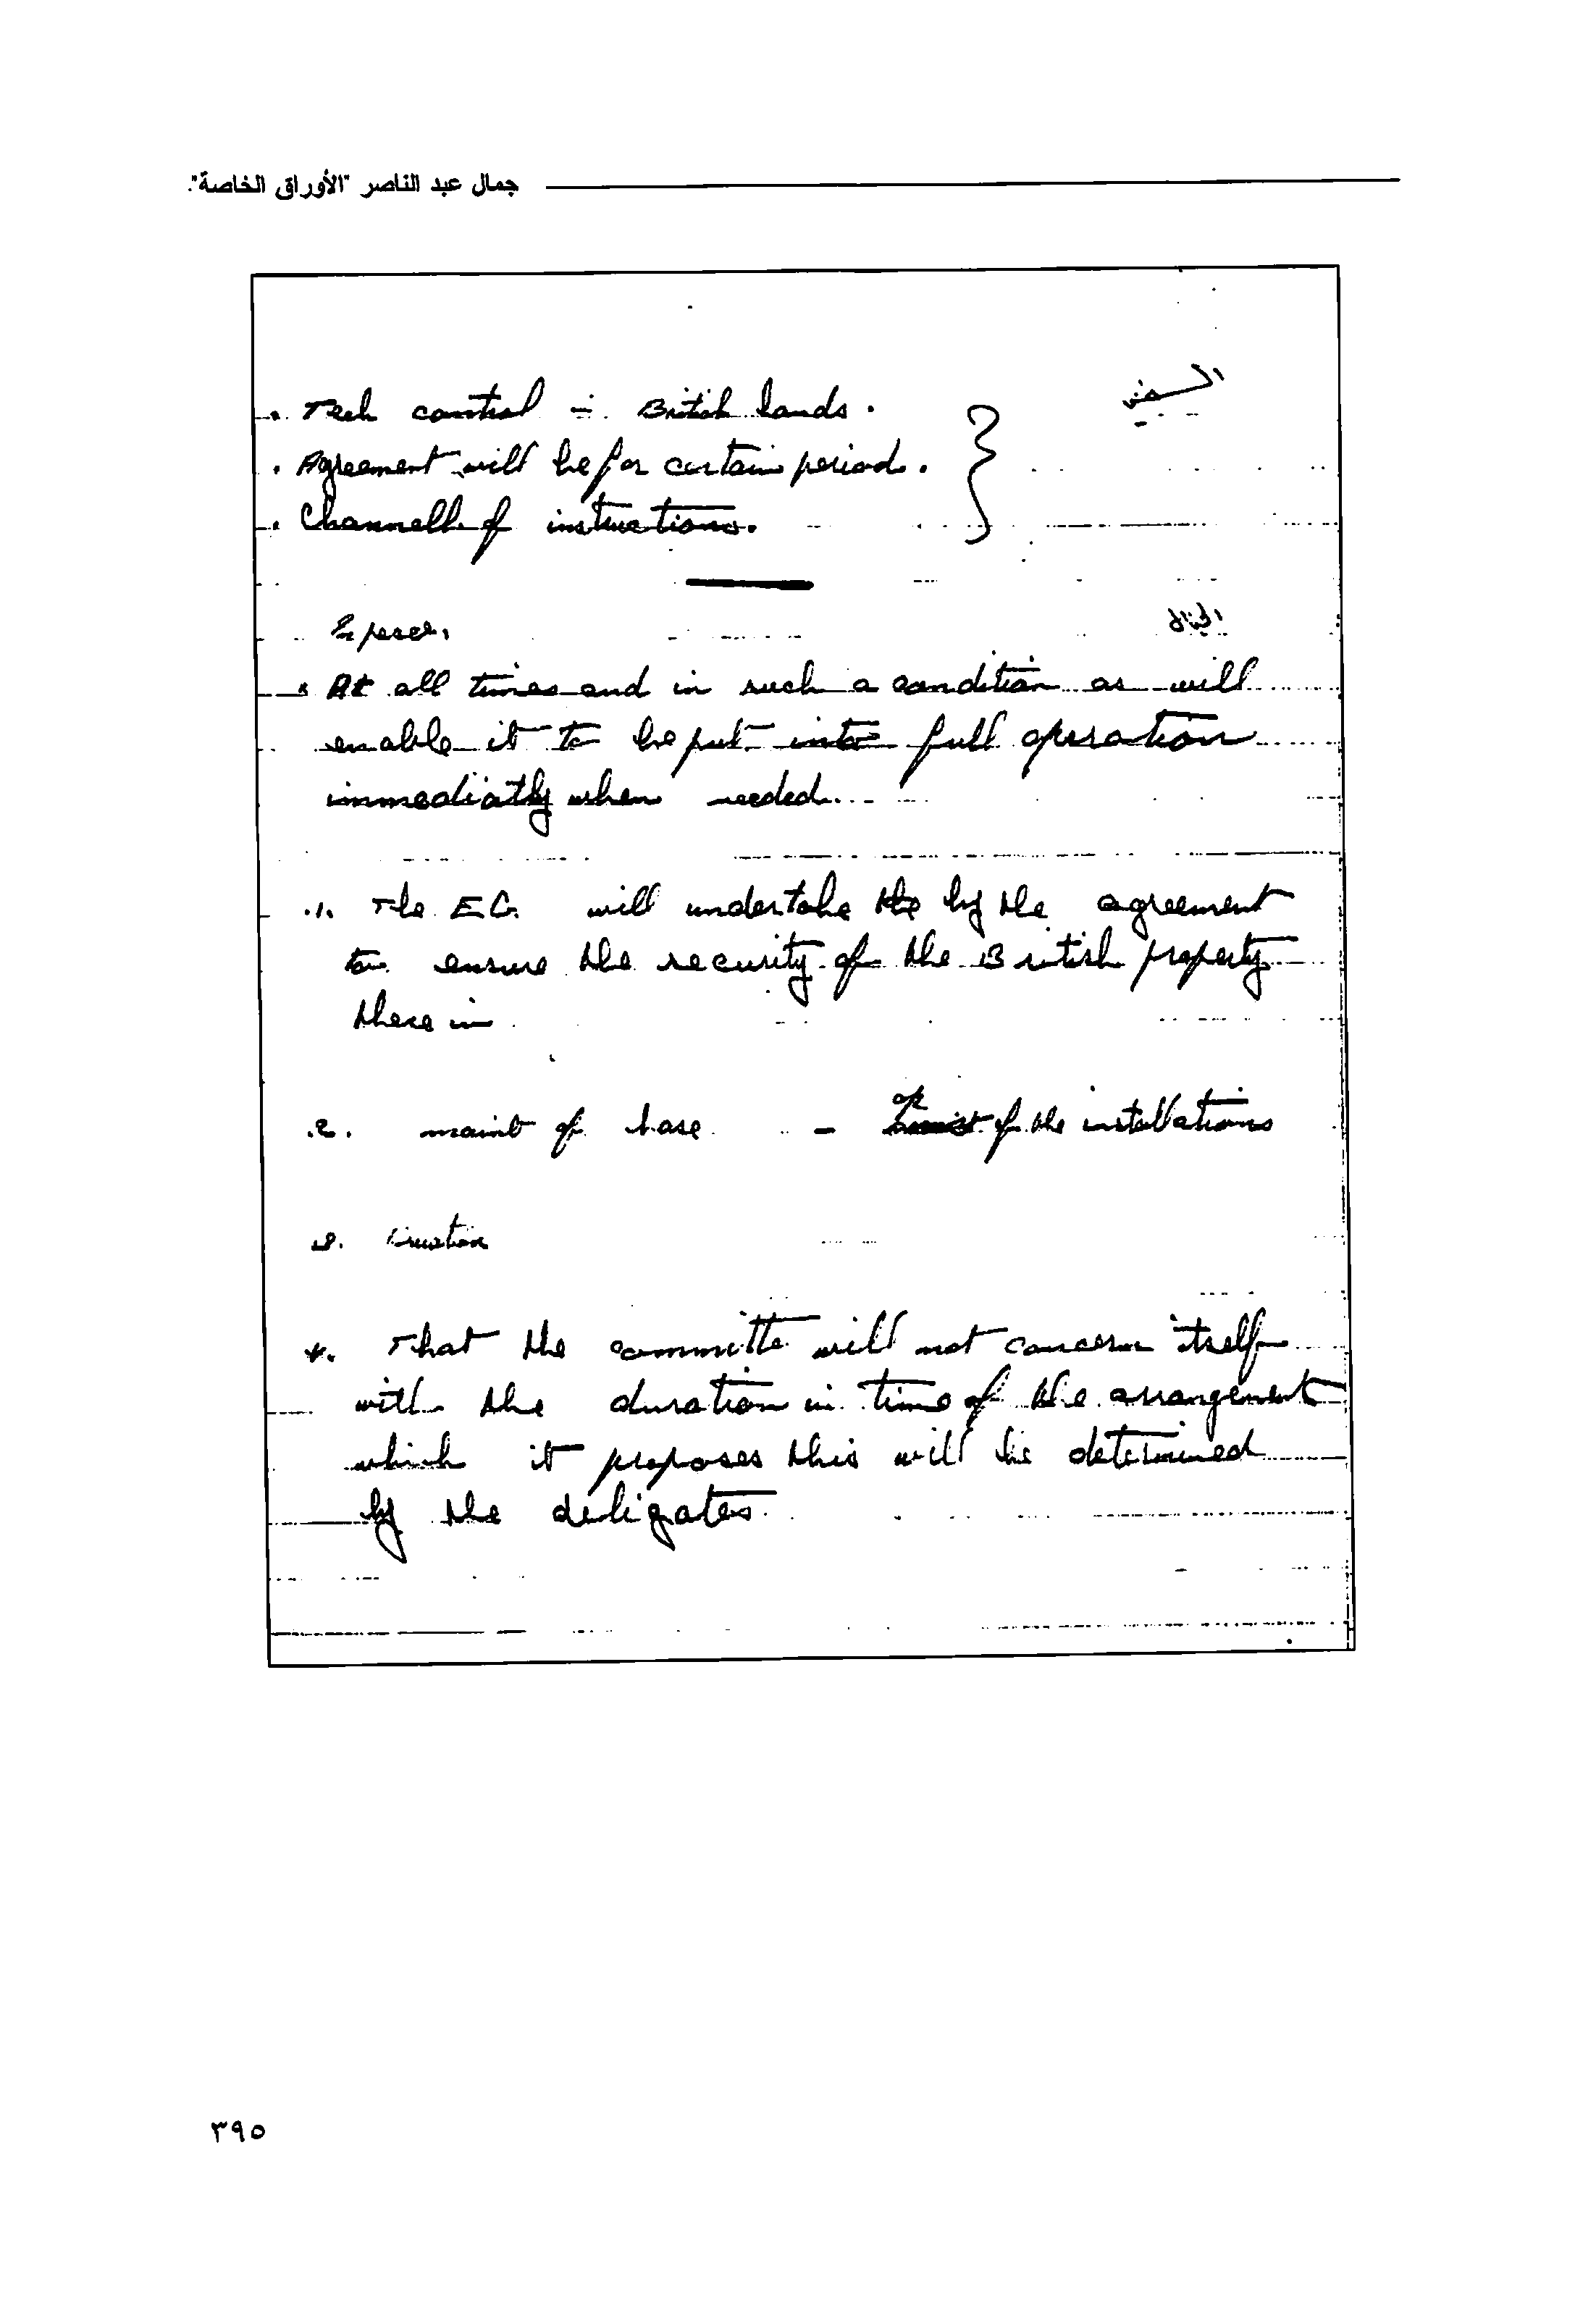 جمال عبد الناصر "الأوراق الخاصة".
. Tech control in British hands.
. Agreement will be for certain period.
. Channells of instructions.
In peace.
* At all times and in such a condition as will
enable it to be put into full operation
immediatly when needed.
.1. The E.G. will undertake the by the agreement
to ensure the security of the British property
there in
.2. maint of base – op of the installations
3.
*. That the committe will not concern itself
with the duration in time of the arrangement
which it proposes this will be determined
by the deligates
٣٩٥